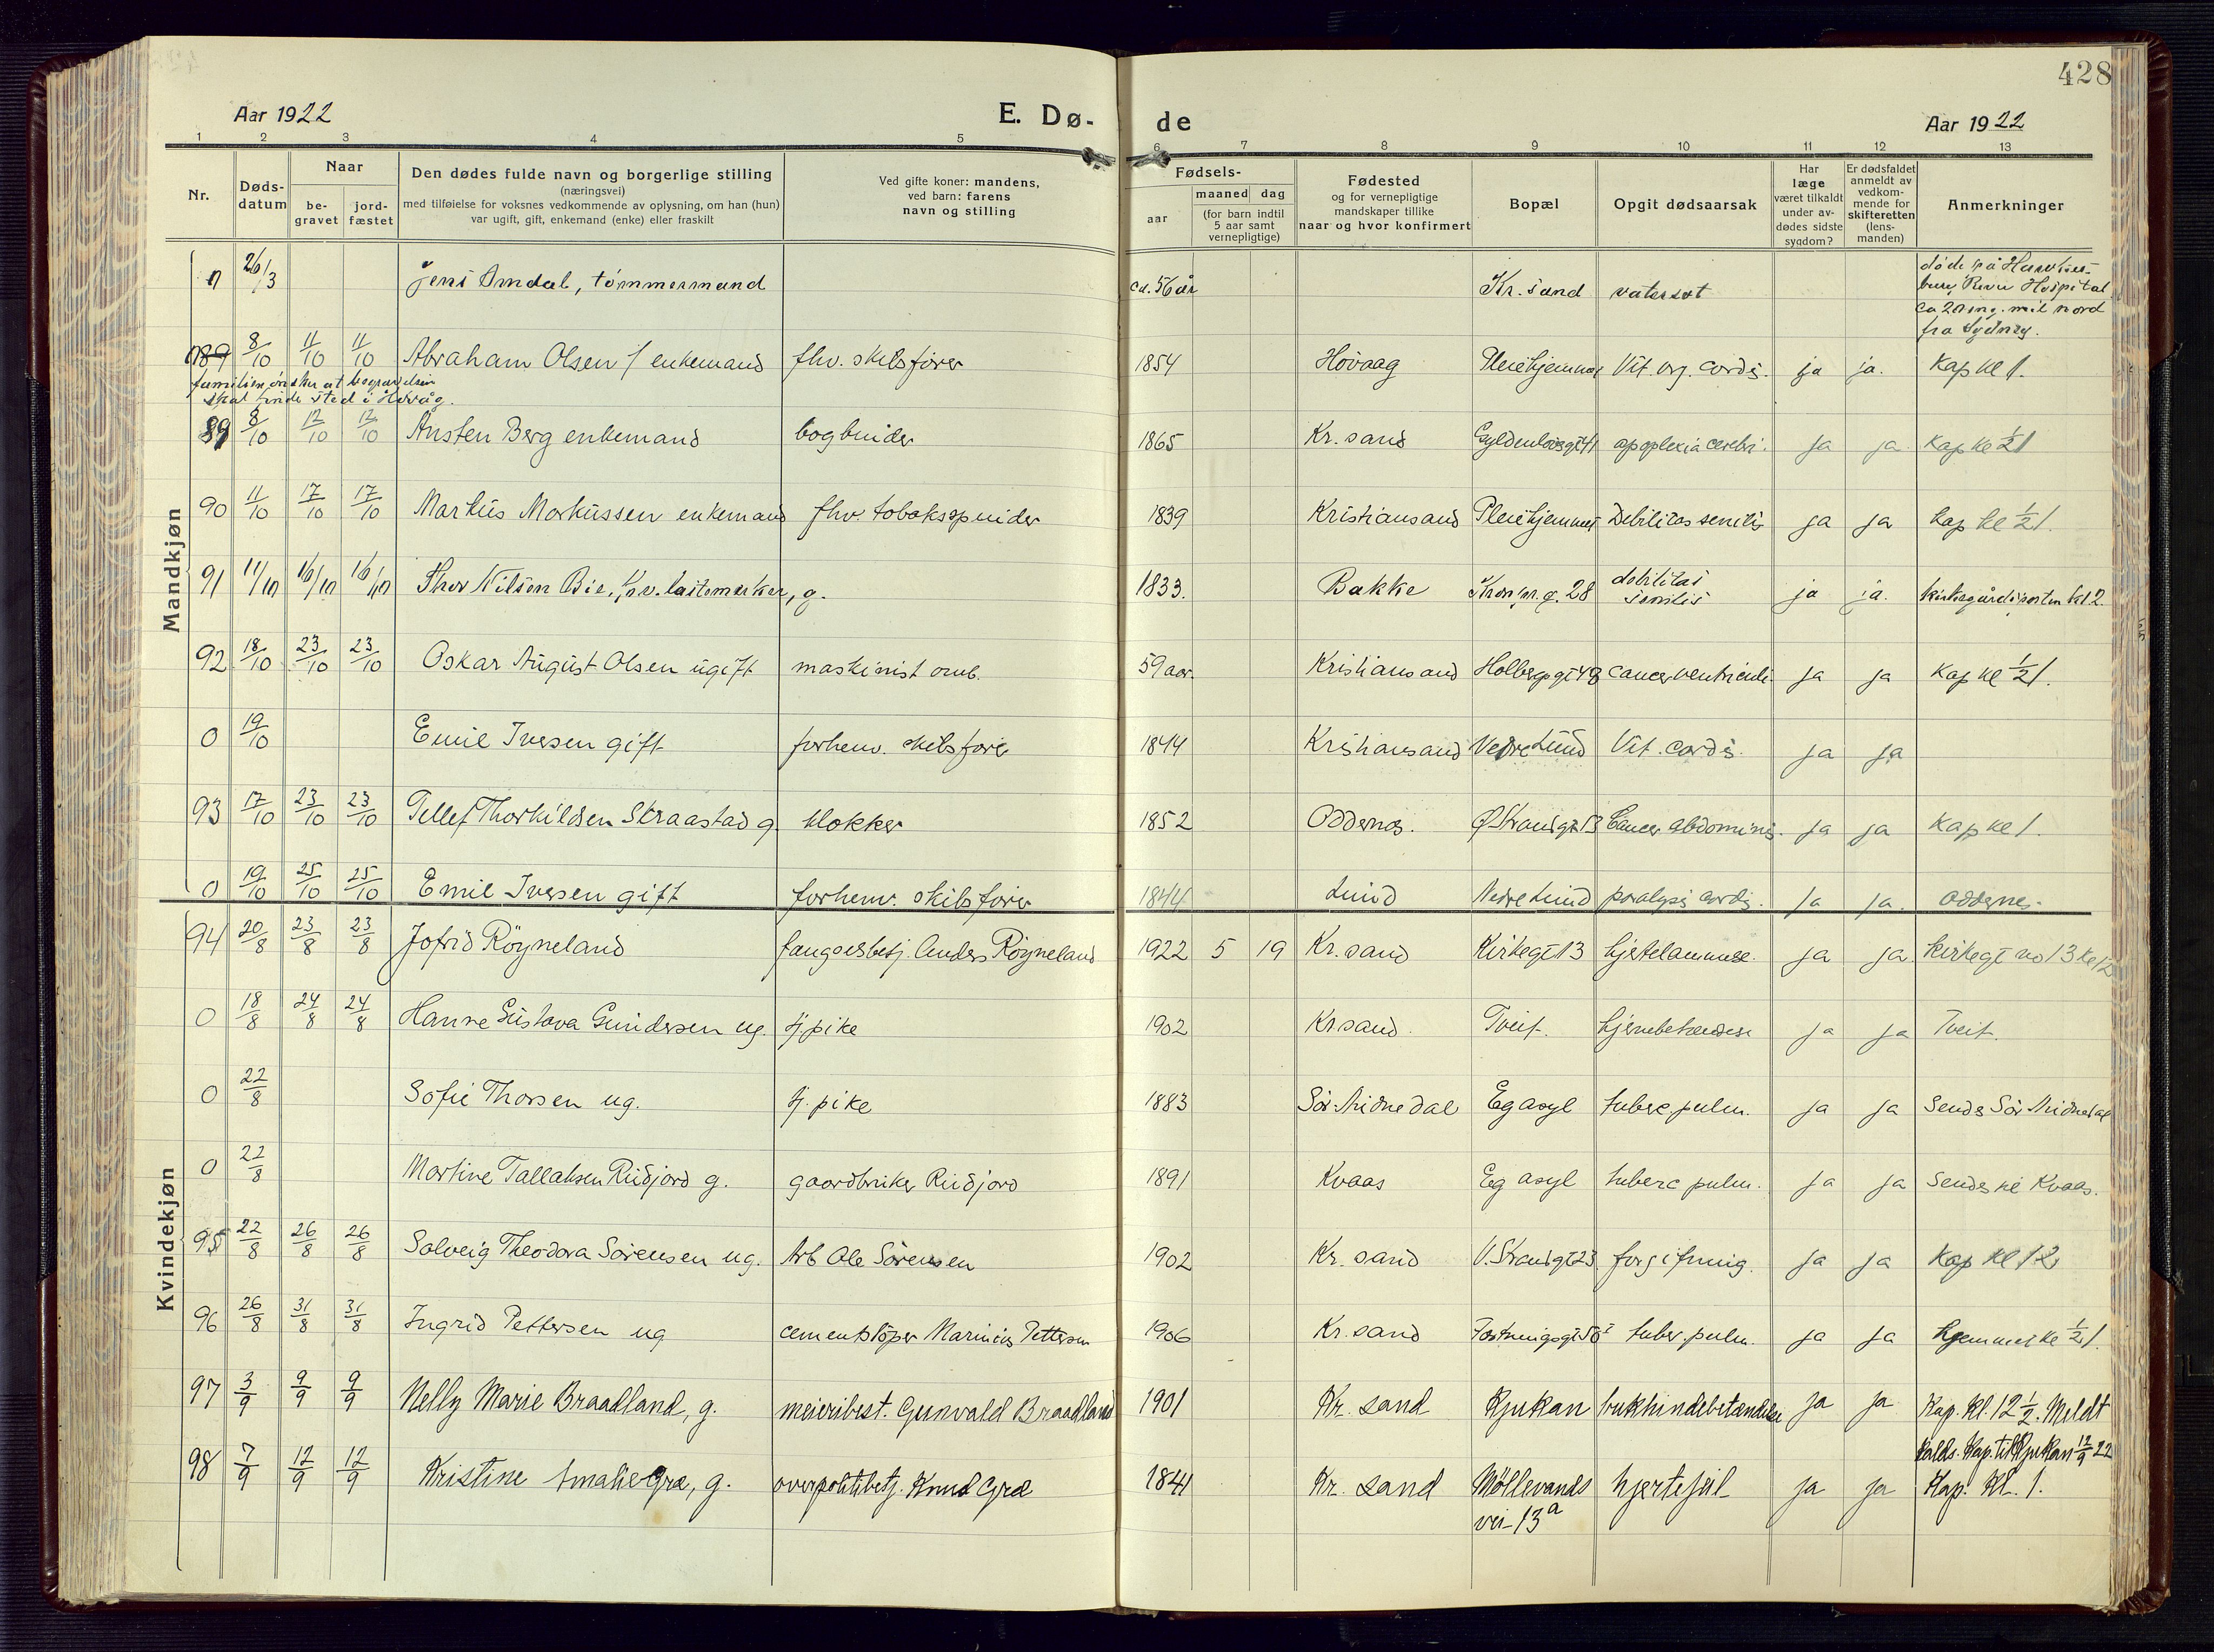 428
Aar 1922
E. Dø-
de
Aar 1922
1 2 3 4 5 6 7 8 9 10 11 12 13
Nr.
Døds-
datum
Naar
be-
gravet
jord-
fæstet
Den dødes fulde navn og borgerlige stilling
(næringsvei)
med tilføielse for voksnes vedkommende av oplysning, om han (hun)
var ugift, gift, enkemand (enke) eller fraskilt
Ved gifte koner: mandens,
ved barn: farens
navn og stilling
Fødsels-
aar
maaned dag
(for barn indtil
5 aar samt
vernepligtige)
Fødested
og for vernepligtige
mandskaper tillike
naar og hvor konfirmert
Bopæl
Opgit dødsaarsak
Har
læge
været tilkaldt
under av-
dødes sidste
sygdom?
Er dødsfaldet
anmeldt av
vedkom-
mende for
skifteretten
(lens-
manden)
Anmerkninger
Mandkjøn
0 26/3 Jens Amdal, tømmermand ca. 56 år Kr.sand vatersot døde på
River Hospital
ca 20 eng. mil nord
fra Sydney.
8/10 11/10 11/10 Abraham Olsen / enkemand fhv. skibsfører 1854 Høvaag Pleiehjemmet Vit. org. cordis. ja ja. Kap kl 1.
familien ønsker at begravelsen
skal finde sted i Høvåg.
89 8/10 12/10 12/10 Ansten Berg enkemand bogbinder 1865 Kr. sand Gyldenløvesgt 41 apoplexia cerebri. ja ja. Kap kl ½1
90 11/10 17/10 17/10 Markus Markussen enkemand fhv. tobakspinder 1839 Kristiansand Pleiehjemmet Debilitas senilis ja ja Kap kl ½1.
91 11/10 16/10 16/10 Thor Nilsen Bie, fhv. lastemerker, g. 1833. Bakke Kronpr.g. 28 debilitas
senilis ja ja. kirkegårdsporten kl 2.
92 18/10 23/10 23/10 Oskar August Olsen ugift maskinist omb. 59 aar. Kristiansand Holbergsgt 48 cancer ventriculi. ja ja Kap kl ½1.
0 19/10 Emil Ivesen gift forhenv. skibsfører 1844 Kristiansand Nedre Lund Vit. cordis. ja ja
93 17/10 23/10 23/10 Tellef Thorkildsen Straastad g. klokker 1852 Oddernes. Ø. Strandgt 13 Cancer abdominis. ja ja Kap kl 1.
0 19/10 25/10 25/10 Emil Ivesen gift forhenv. skibsfører 1844 Lund Nedre Lund paralysis cordis. ja ja. Oddernes.
Kvindekjøn
94 20/8 23/8 23/8 Jofrid Röyneland fængselsbetj. Anders Röyneland 1922 5 19 Kr. sand Kirkegt 13 hjertelammelse. ja ja. Kirkegt no 13 kl 12
0 18/8 24/8 24/8 Hanne Gustava Gundersen ug. tj. pike 1902 Kr sand. Tveit. hjernebetændelse ja ja Tveit.
0 22/8 Sofie Thorsen ug. tj. pike 1883 Sör Audnedal Eg asyl tuberc pulm. ja ja Sendes Sör Audnedal
0 22/8 Martine Tallaksen Riidjord g. gaardbruker Riidjord 1891 Kvaas Eg asyl tuberc pulm. ja ja Sendes til Kvaas.
95 22/8 26/8 26/8 Solveig Theodora Sörensen ug. Arb Ole Sörensen 1902 Kr. sand V. Strandgt 23 forgiftning. ja ja Kap kl 12
96 26/8 31/8 31/8 Ingrid Pettersen ug cementstöper Marinius Pettersen 1906 Kr. sand tuber. pulm. ja ja hjemmet kl ½1.
97 3/9 9/9 9/9 Nelly Marie Braadland, g. meieribest. Gunvald Braadland 1901 Kr. sand Rjukan bukhindebetændelse ja ja Kap. kl. 12 ½. Meldt
Kap. til Rjukan 12/9 22
98 7/9 12/9 12/9 Kristine Amalie Græ, g. overpolitibetj. Knud Græ 1841 Kr. sand Möllevands
vei 13a hjertefeil ja ja Kap. Kl. 1.